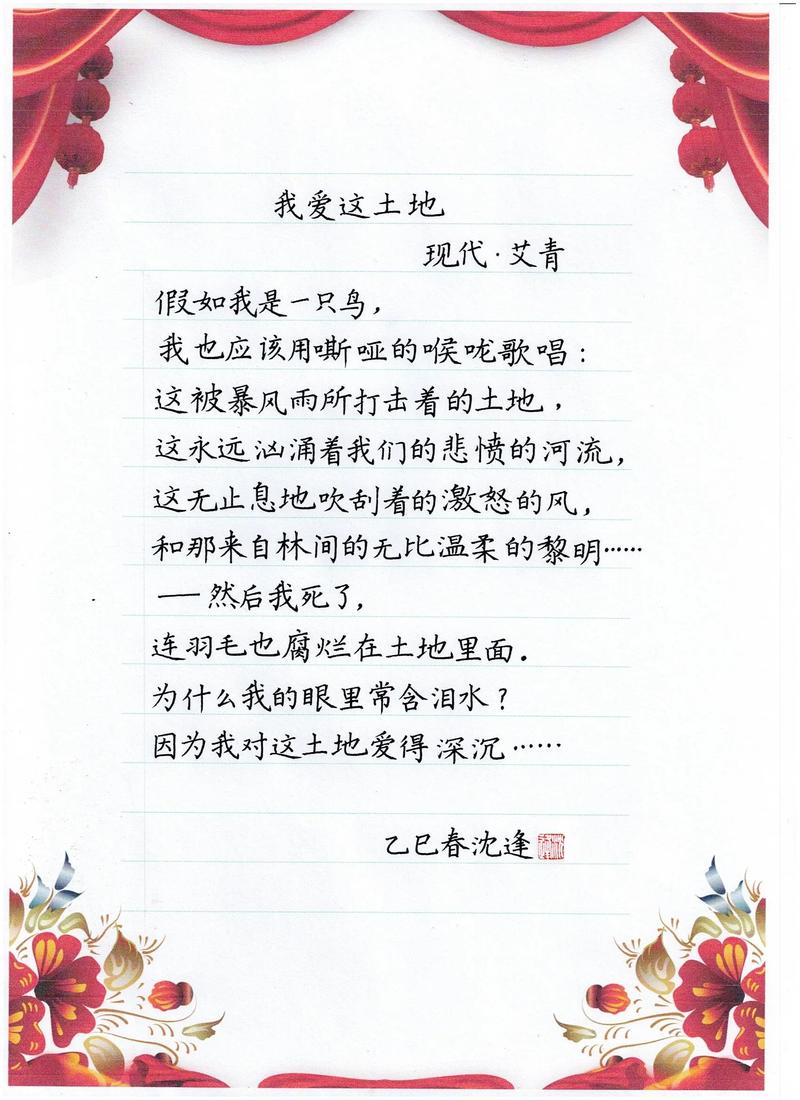 我爱这土地
现代·艾青
假如我是一只鸟，
我也应该用嘶哑的喉咙歌唱：
这被暴风雨所打击着的土地，
这永远汹涌着我们的悲愤的河流，
这无止息地吹刮着的激怒的风，
和那来自林间的无比温柔的黎明……
——然后我死了，
连羽毛也腐烂在土地里面.
为什么我的眼里常含泪水？
因为我对这土地爱得深沉……
乙巳春沈逢